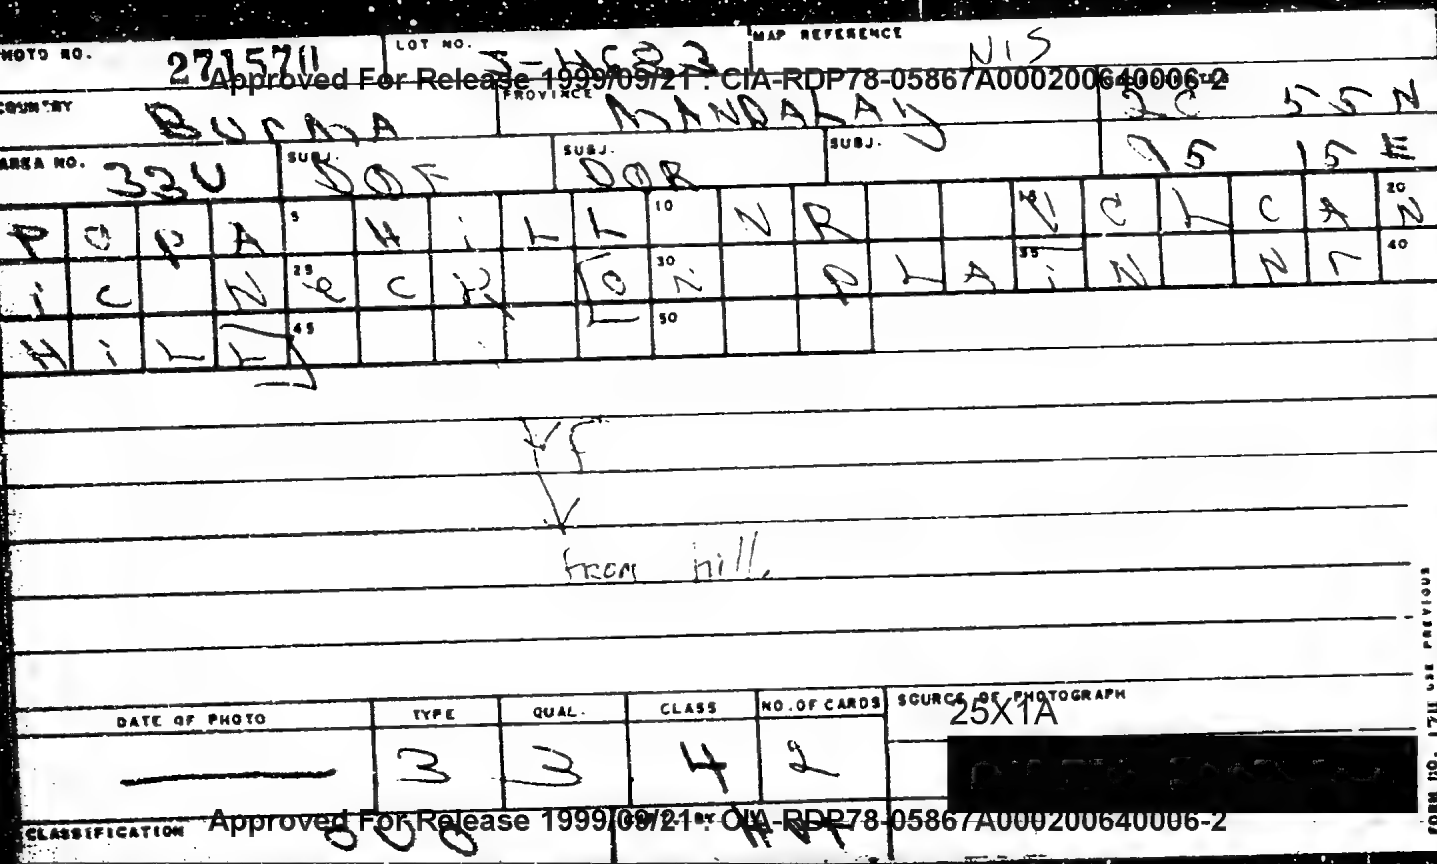 PHOTO NO. 271570 LOT NO. MAP REFERENCE NIS
Approved For Release 1999/09/21 : CIA-RDP78-05867A000200640006-2
COUNTRY Burma PROVINCE MANDALAY 20 55 N
AREA NO. 330 SUBJ. SUBJ. DOR SUBJ. 95 15 E
5 10 20
POPA HiLL NR VOLCAN
25 30 35 40
iC N PLAiN Nr
45 50
HiLL
from hill.
DATE OF PHOTO TYPE QUAL. CLASS NO. OF CARDS SOURCE OF PHOTOGRAPH
25X1A
3 3 4 2
Approved For Release 1999/09/21 : CIA-RDP78-05867A000200640006-2
CLASSIFICATION
USE PREVIOUS
FORM NO.